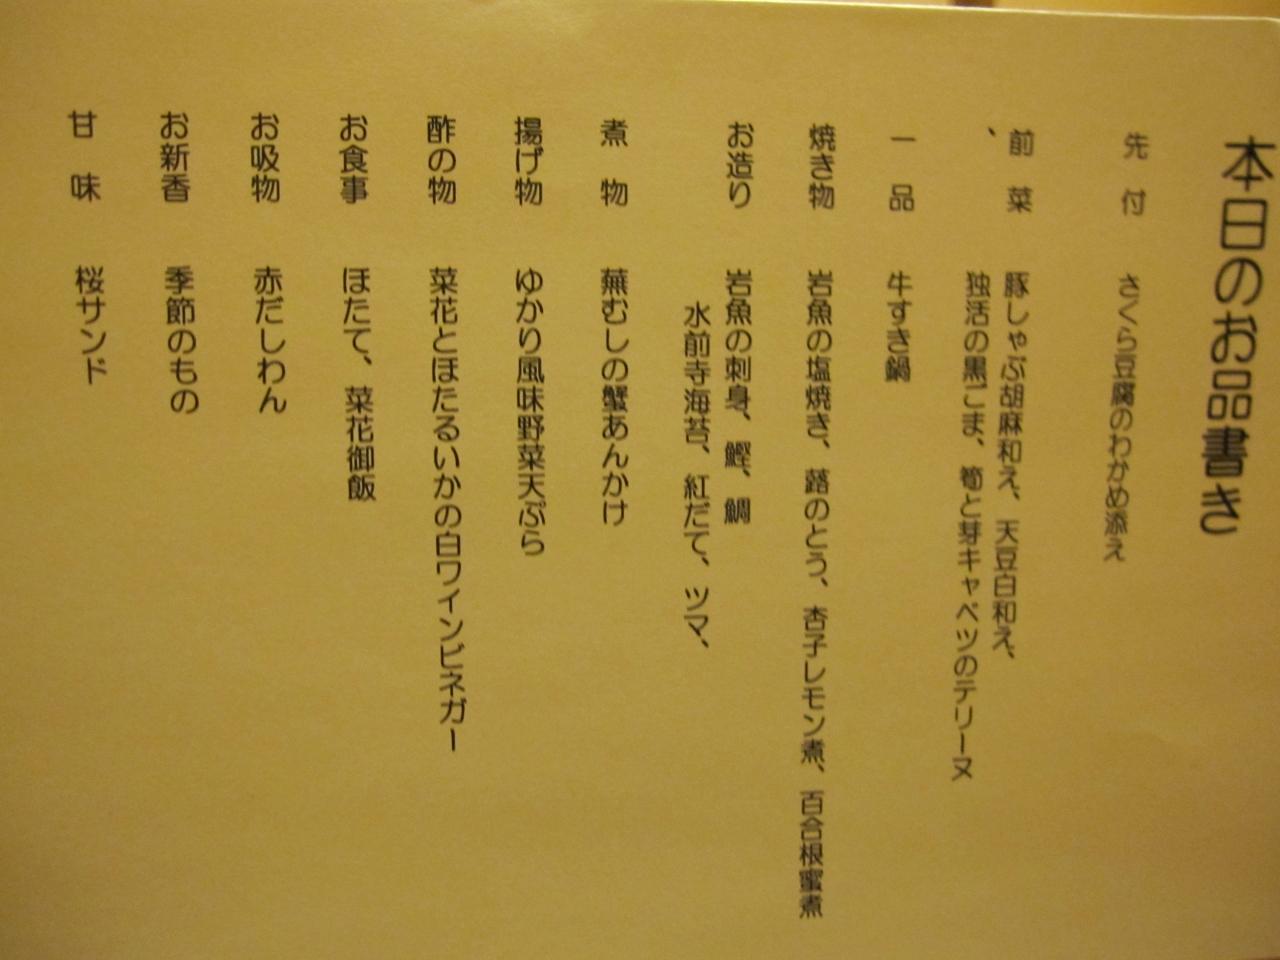 本日のお品書き
先付 さくら豆腐のわかめ添え
前菜 豚しゃぶ胡麻和え、天豆白和え、
、 独活の黒ごま、筍と芽キャベツのテリーヌ
一品 牛すき鍋
焼き物 岩魚の塩焼き、蕗のとう、杏子レモン煮、百合根蜜煮
お造り 岩魚の刺身、鰹、鯛
水前寺海苔、紅だて、ツマ、
煮物 蕪むしの蟹あんかけ
揚げ物 ゆかり風味野菜天ぷら
酢の物 菜花とほたるいかの白ワインビネガー
お食事 ほたて、菜花御飯
お吸物 赤だしわん
お新香 季節のもの
甘味 桜サンド